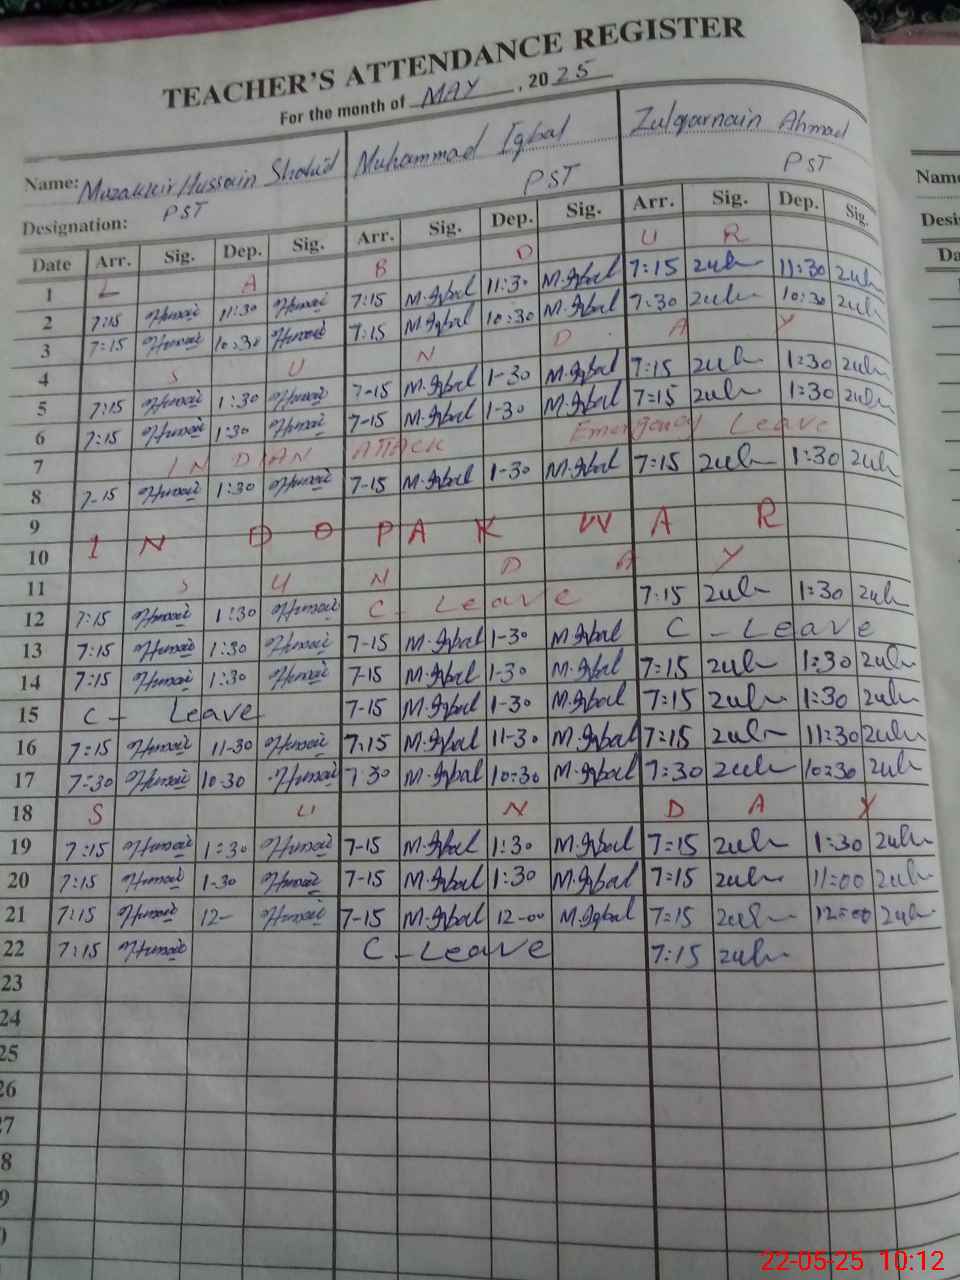 TEACHER'S ATTENDANCE REGISTER
For the month of MAY, 2025
Name: Muzakkir Hussain Shahid Muhammad Iqbal Zulqarnain Ahmad
Designation: PST PST PST
Date Arr. Sig. Dep. Sig. Arr. Sig. Dep. Sig. Arr. Sig. Dep. Sig.
1 L A B O U R
2 7:15 Hussain 11:30 Hussain 7:15 M.Iqbal 11:30 M.Iqbal 7:15 zul 11:30 zul
3 7:15 Hussain 10:30 Hussain 7:15 M.Iqbal 10:30 M.Iqbal 7:30 zul 10:30 zul
4 S U N D A Y
5 7:15 Hussain 1:30 Hussain 7-15 M.Iqbal 1-30 M.Iqbal 7:15 zul 1:30 zul
6 7:15 Hussain 1:30 Hussain 7-15 M.Iqbal 1-30 M.Iqbal 7:15 zul 1:30 zul
7 INDIAN ATTACK Emergency Leave
8 7-15 Hussain 1:30 Hussain 7-15 M.Iqbal 1-30 M.Iqbal 7:15 zul 1:30 zul
9
10 I N D O P A K W A R
11 S U N D A Y
12 7:15 Hussain 1:30 Hussain C - Leave 7:15 zul 1:30 zul
13 7:15 Hussain 1:30 Hussain 7-15 M.Iqbal 1-30 M.Iqbal C - Leave
14 7:15 Hussain 1:30 Hussain 7-15 M.Iqbal 1-30 M.Iqbal 7:15 zul 1:30 zul
15 C - Leave 7-15 M.Iqbal 1-30 M.Iqbal 7:15 zul 1:30 zul
16 7:15 Hussain 11-30 Hussain 7:15 M.Iqbal 11-30 M.Iqbal 7:15 zul 11:30 zul
17 7-30 Hussain 10-30 Hussain 7-30 M.Iqbal 10:30 M.Iqbal 7:30 zul 10:30 zul
18 S U N D A Y
19 7:15 Hussain 1:30 Hussain 7-15 M.Iqbal 1:30 M.Iqbal 7:15 zul 1:30 zul
20 7:15 Hussain 1-30 Hussain 7-15 M.Iqbal 1:30 M.Iqbal 7:15 zul 11:00 zul
21 7:15 Hussain 12- Hussain 7-15 M.Iqbal 12-00 M.Iqbal 7:15 zul 12:00 zul
22 7:15 Hussain C - Leave 7:15 zul
23
24
25
26
7
8
9
Name
Desi
Da
22-05-25 10:12